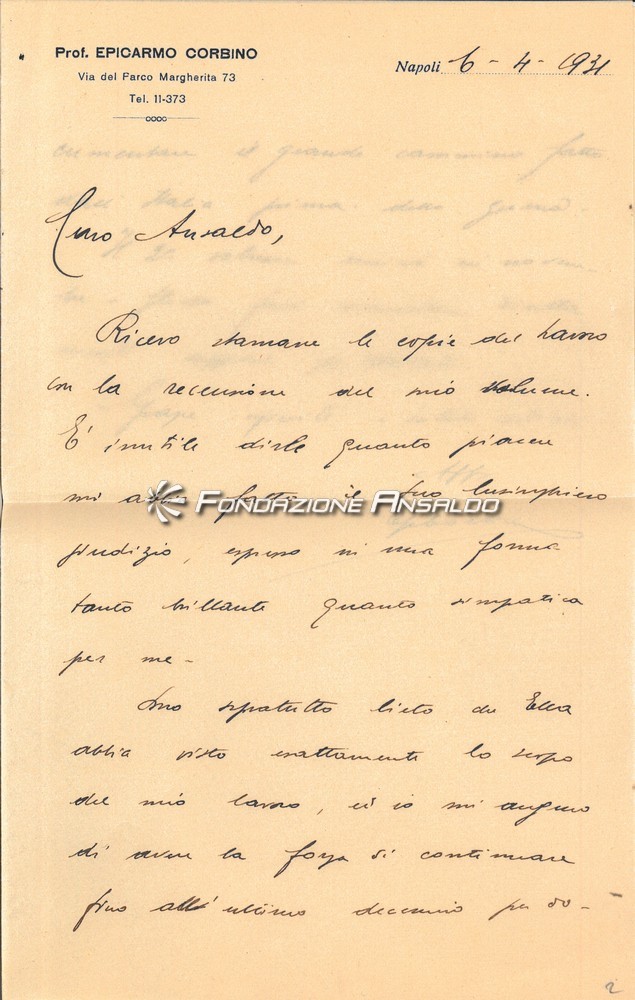 Prof. EPICARMO CORBINO
Via del Parco Margherita 73
Tel. 11-373
Napoli 6 - 4 - 1931
Caro Ansaldo,
Ricevo stamane le copie del Lavoro
con la recensione del mio volume.
E' inutile dirle quanto piacere
mi abbia fatto il Suo lusinghiero
FONDAZIONE ANSALDO
giudizio, espresso in una forma
tanto brillante quanto simpatica
per me -
Sono sopratutto lieto che Ella
abbia visto esattamente lo scopo
del mio lavoro, ed io mi auguro
di avere la forza di continuare
fino all'ultimo decennio per do-
2